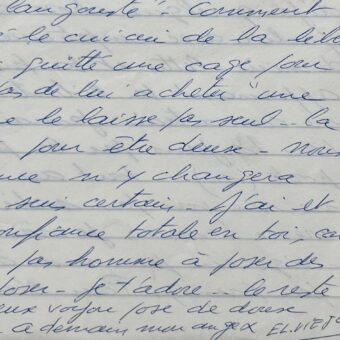 langouste". Comment
le cui cui de la bibl
quitte une cage pour
as de lui acheter une
e le laisse pas seul - la
pour être deux - nous
n'y changera
suis certain. J'ai et
confiance totale en toi, car
pas homme à poser des
poser - je t'adore - le reste
eux voyou pose de doux
a demain mon ange x